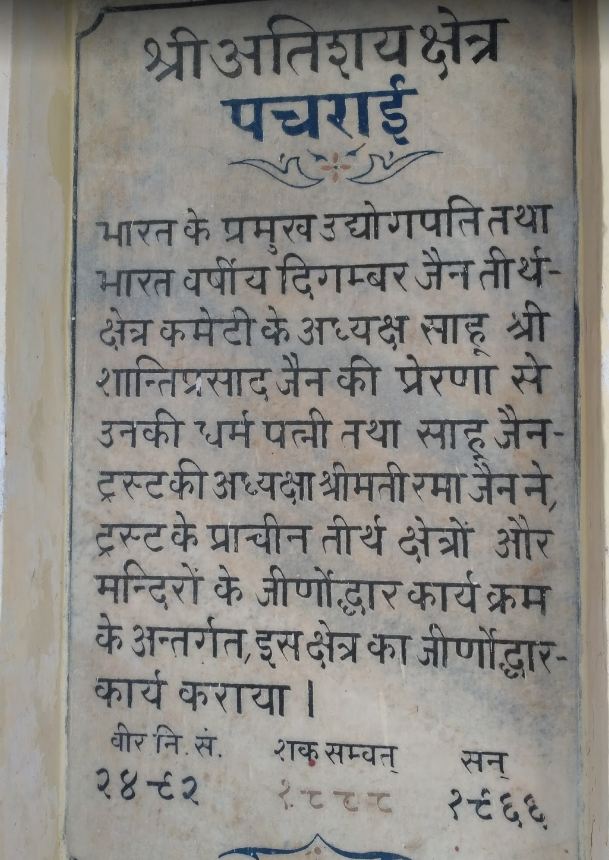 श्री अतिशय क्षेत्र
पचराई
भारत के प्रमुख उद्योगपति तथा
भारत वर्षीय दिगम्बर जैन तीर्थ-
क्षेत्र कमेटी के अध्यक्ष साहू श्री
शान्तिप्रसाद जैन की प्रेरणा से
उनकी धर्म पत्नी तथा साहू जैन-
ट्रस्ट की अध्यक्षा श्रीमती रमा जैन ने,
ट्रस्ट के प्राचीन तीर्थ क्षेत्रों और
मन्दिरों के जीर्णोद्धार कार्य क्रम
के अन्तर्गत, इस क्षेत्र का जीर्णोद्धार-
कार्य कराया ।
वीर नि. सं. शक सम्वत् सन्
२४९२ १८८८ १९६६